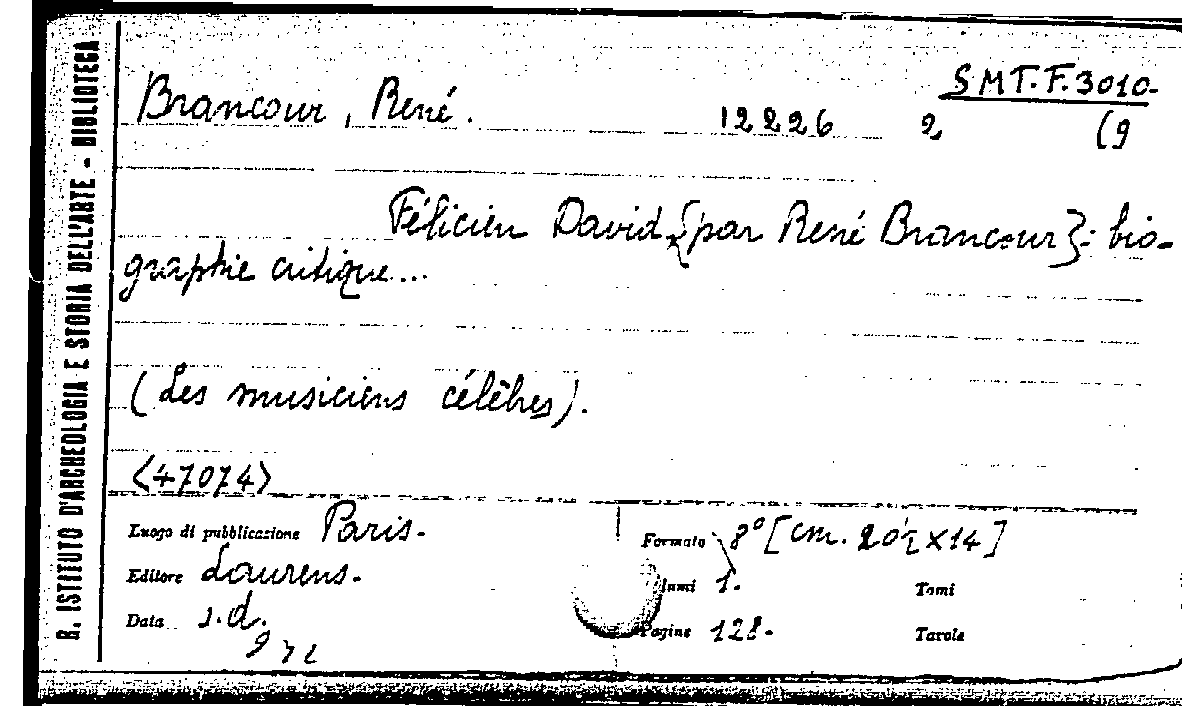 R. ISTITUTO D'ARCHEOLOGIA E STORIA DELL'ARTE - BIBLIOTECA
SMT.F.3010.
Brancour, René. 12226 2 (9
Félicien David {par René Brancour}: bio-
graphie critique...
(Les musiciens célèbres).
<47074>
Luogo di pubblicazione Paris.
Editore Laurens.
Data s.d.
Formato 8° [cm. 20½ x 14]
lumi 1. Tomi
Pagine 128. Tavole